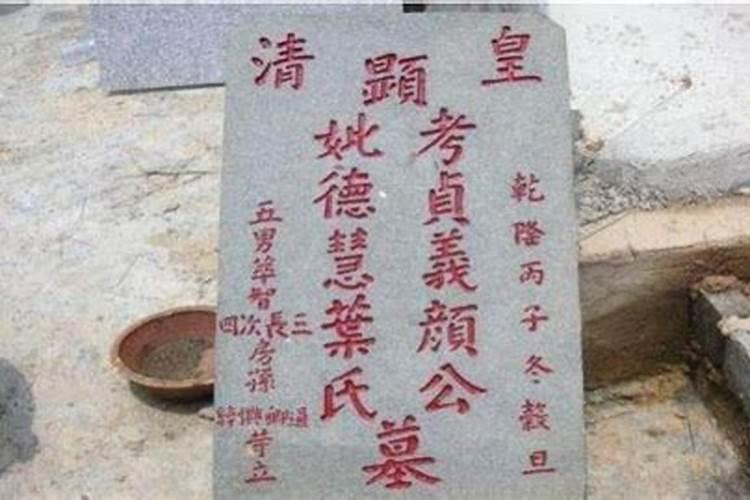 皇清
乾隆丙子冬穀旦
顯
考貞義顏公
妣德慧葉氏
墓
五男準智
三長次四
房孫
等立